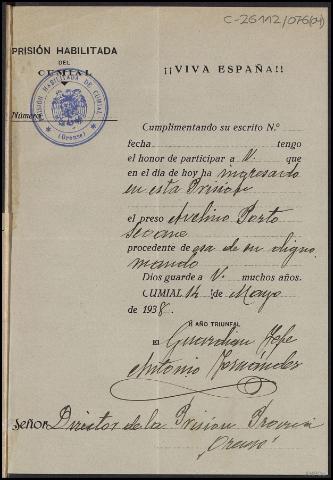 C-26112/076(04)
PRISIÓN HABILITADA
DEL
CUMIAL
PRISIÓN HABILITADA DE CUMIAL
(Orense)
Número
¡¡VIVA ESPAÑA!!
Cumplimentando su escrito N.º
fecha tengo
el honor de participar a V. que
en el día de hoy ha ingresado
en esta Prisión
el preso Avelino Porto
Seoane
procedente de esa de su digno
mando
Dios guarde a V. muchos años.
CUMIAL 14 de Mayo
de 1938.
II AÑO TRIUNFAL
El Guardian Jefe
Antonio Fernández
Señor Director de la Prisión Provin
Orense